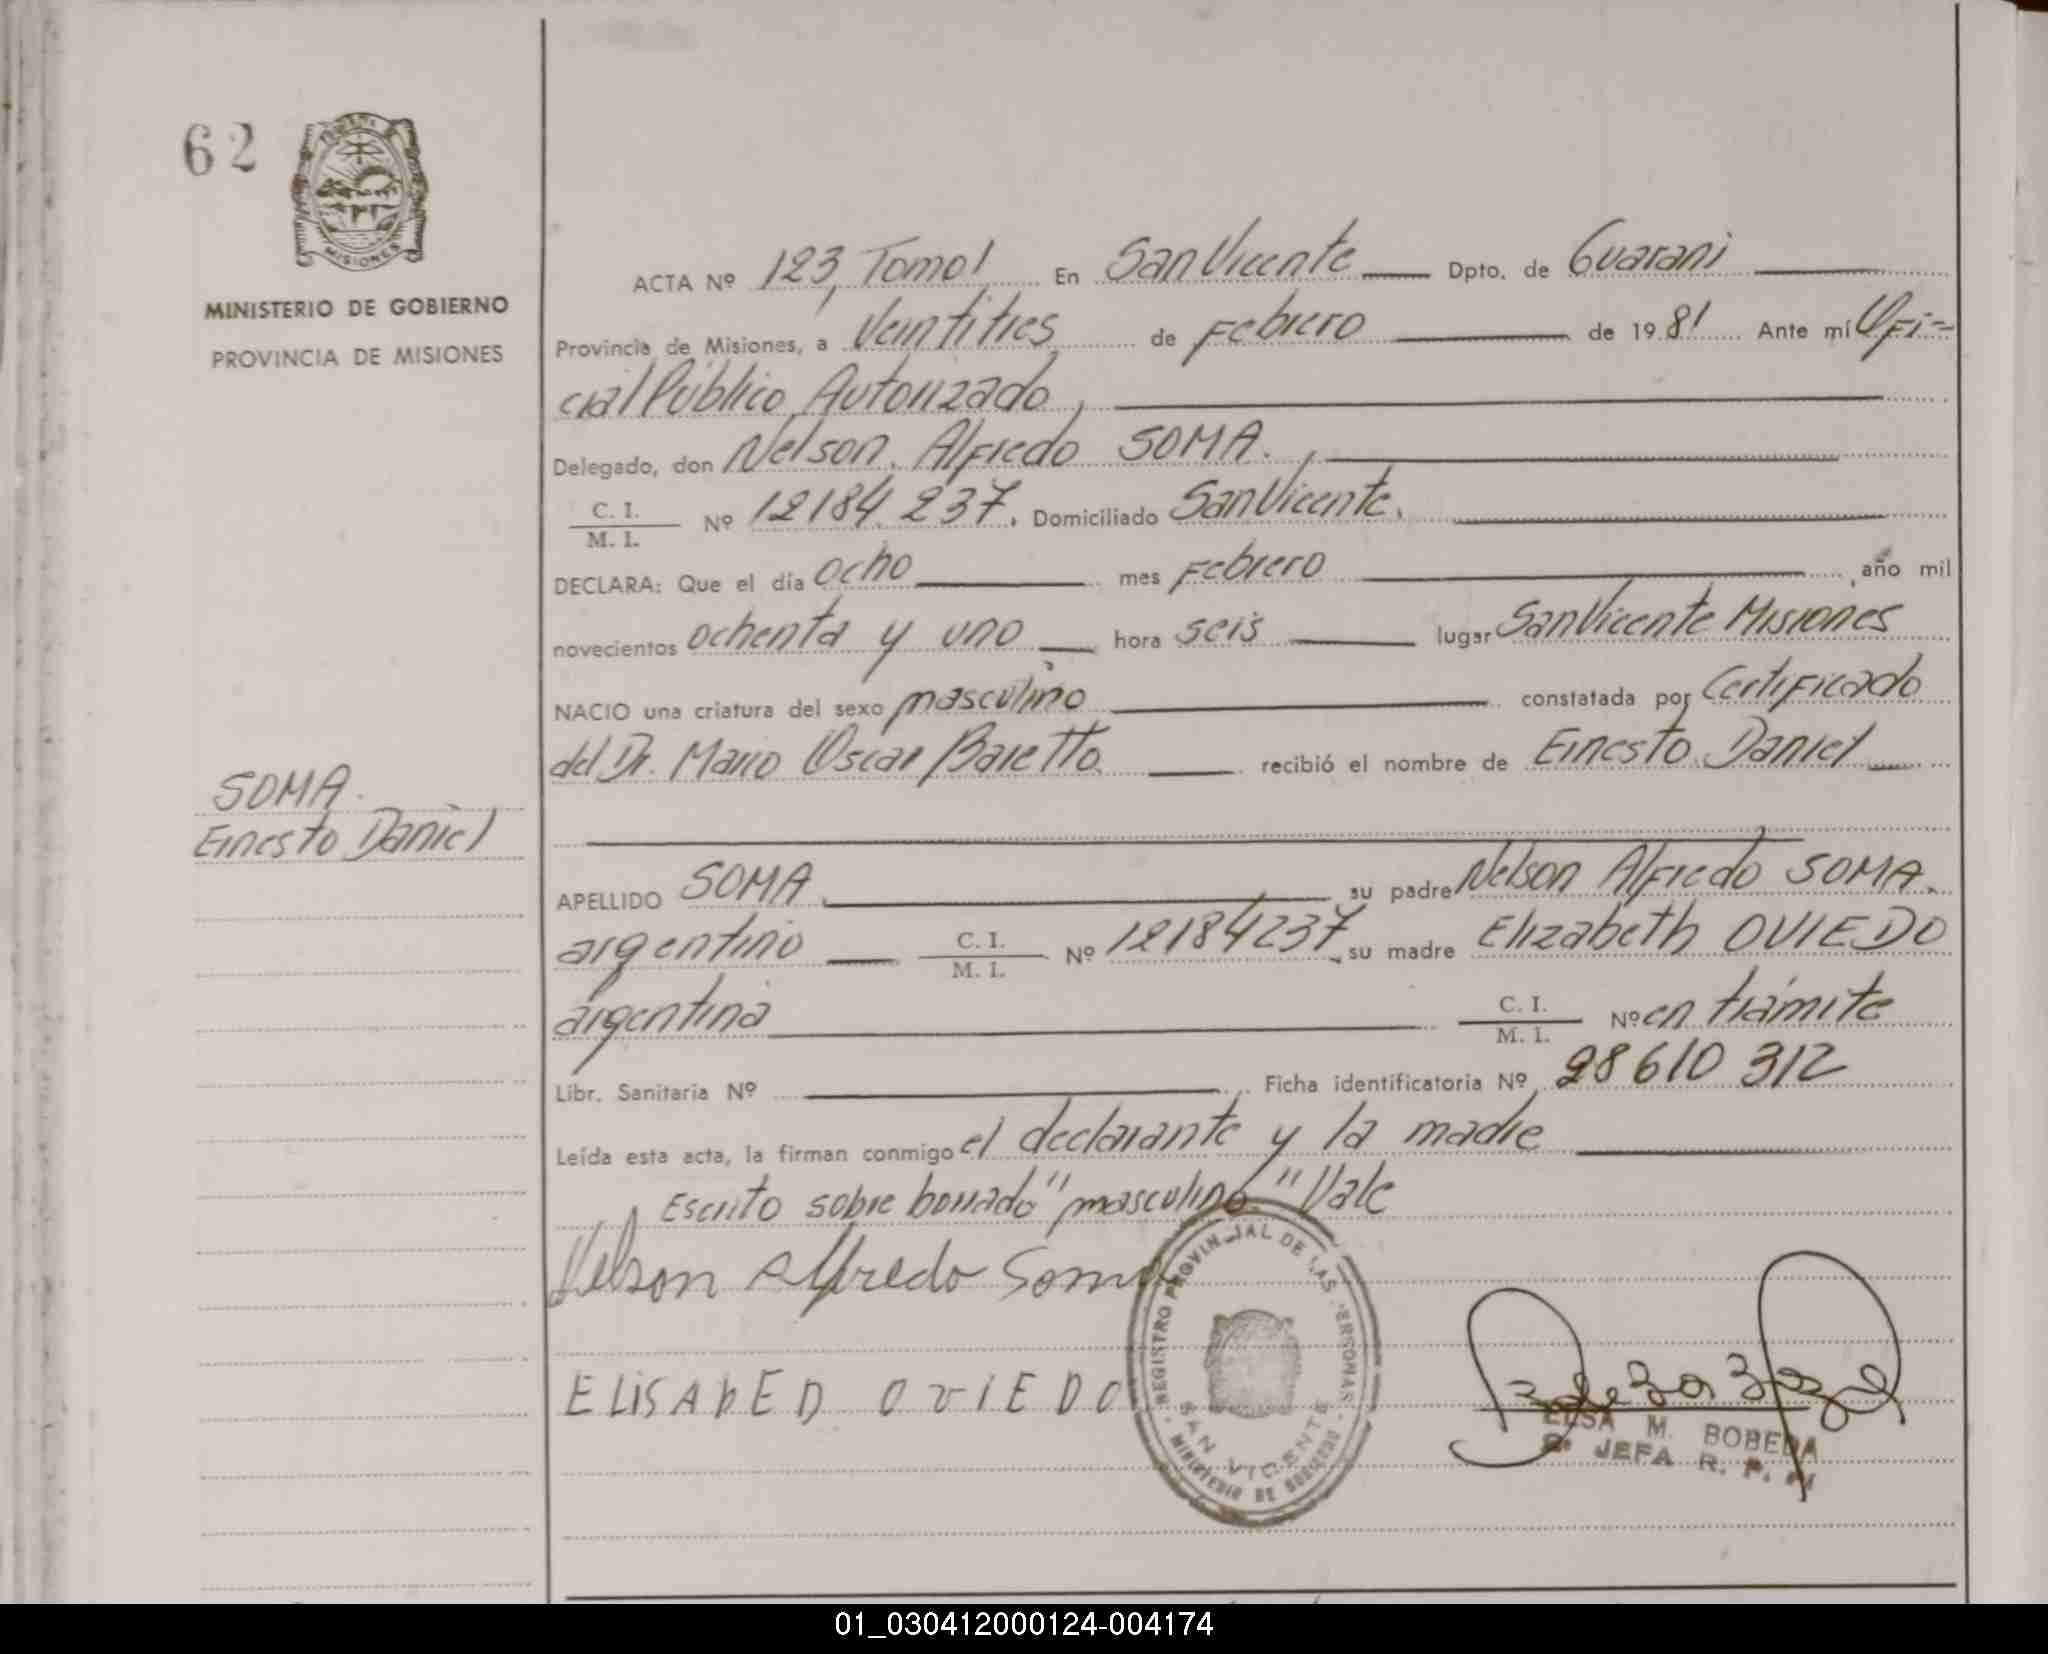 62
MISIONES
MINISTERIO DE GOBIERNO
PROVINCIA DE MISIONES
ACTA Nº 123, Tomo I En San Vicente Dpto. de Guarani
Provincia de Misiones, a Veintitres de Febrero de 1981 Ante mí Ofi=
cial Público Autorizado,
Delegado, don Nelson Alfredo SOMA.,
C. I.
M. I. Nº 12184 237. Domiciliado San Vicente.
DECLARA: Que el día ocho mes Febrero, año mil
novecientos ochenta y uno hora seis lugar San Vicente Misiones
NACIO una criatura del sexo masculino constatada por Certificado
del Dr. Mario Oscar Baretto recibió el nombre de Ernesto Daniel
SOMA.
Ernesto Daniel
APELLIDO SOMA, su padre Nelson Alfredo SOMA.
argentino C. I.
M. I. Nº 12184237, su madre Elizabeth OVIEDO
argentina C. I.
M. I. Nº en trámite
Libr. Sanitaria Nº Ficha identificatoria Nº 28610 312
Leída esta acta, la firman conmigo el declarante y la madre
Escrito sobre borrado "masculino" Vale
Nelson Alfredo Soma
ELISAbED OVIEDO
REGISTRO PROVINCIAL DE LAS PERSONAS
SAN VICENTE
MINISTERIO DE GOBIERNO
ELSA M. BOBEDA
2º JEFA R. P.
01_030412000124-004174